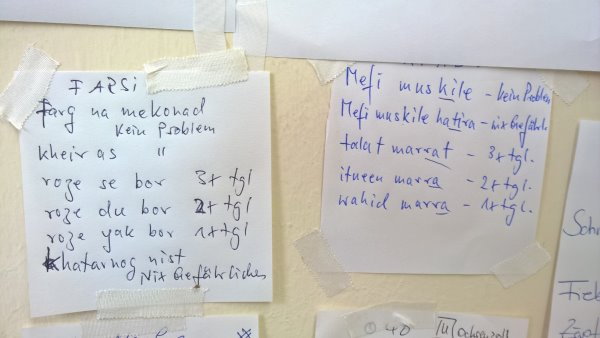 FARSi
Farg na mekonad
kein Problem
kheir as "
roze se bor 3x tgl
roze du bor 2x tgl
roze yak bor 1x tgl
khatarnog nist
Nix Gefährliches
Mefi muskile - kein Problem
Mefi muskile hatira - nix Gefährl.
talat marrat - 3x tgl.
itneen marra - 2x tgl.
wahid marra - 1x tgl.
Schr
Fieb
40